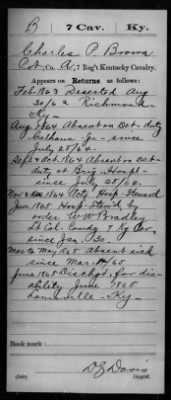 B | 7 Cav. | Ky.
Charles P. Brown
Pvt, Co. A, 7 Reg't Kentucky Cavalry.
Appears on Returns as follows:
Feb 1863 Deserted Aug
30/62 Richmond
Ky.
Aug 1864 Absent on Det. duty
Calhoun Ga. since
July 25/64.
Sept & Oct. 1864 Absent on det.
duty at Brig. Hosp'l
since July 25/64.
1864 Actg Hosp. Steward
Jan 1865 Hosp. Stew'd by
order W. W. Bradley
Lt Col. Comdg 7 Ky Cav.
since Jan. 30.
Mar to May 1865 Absent sick
since Mar. /65
June 1865 Disch'd. for dis-
ability June 1865
Louisville Ky.
Book mark:
D E Davis
(546) Copyist.